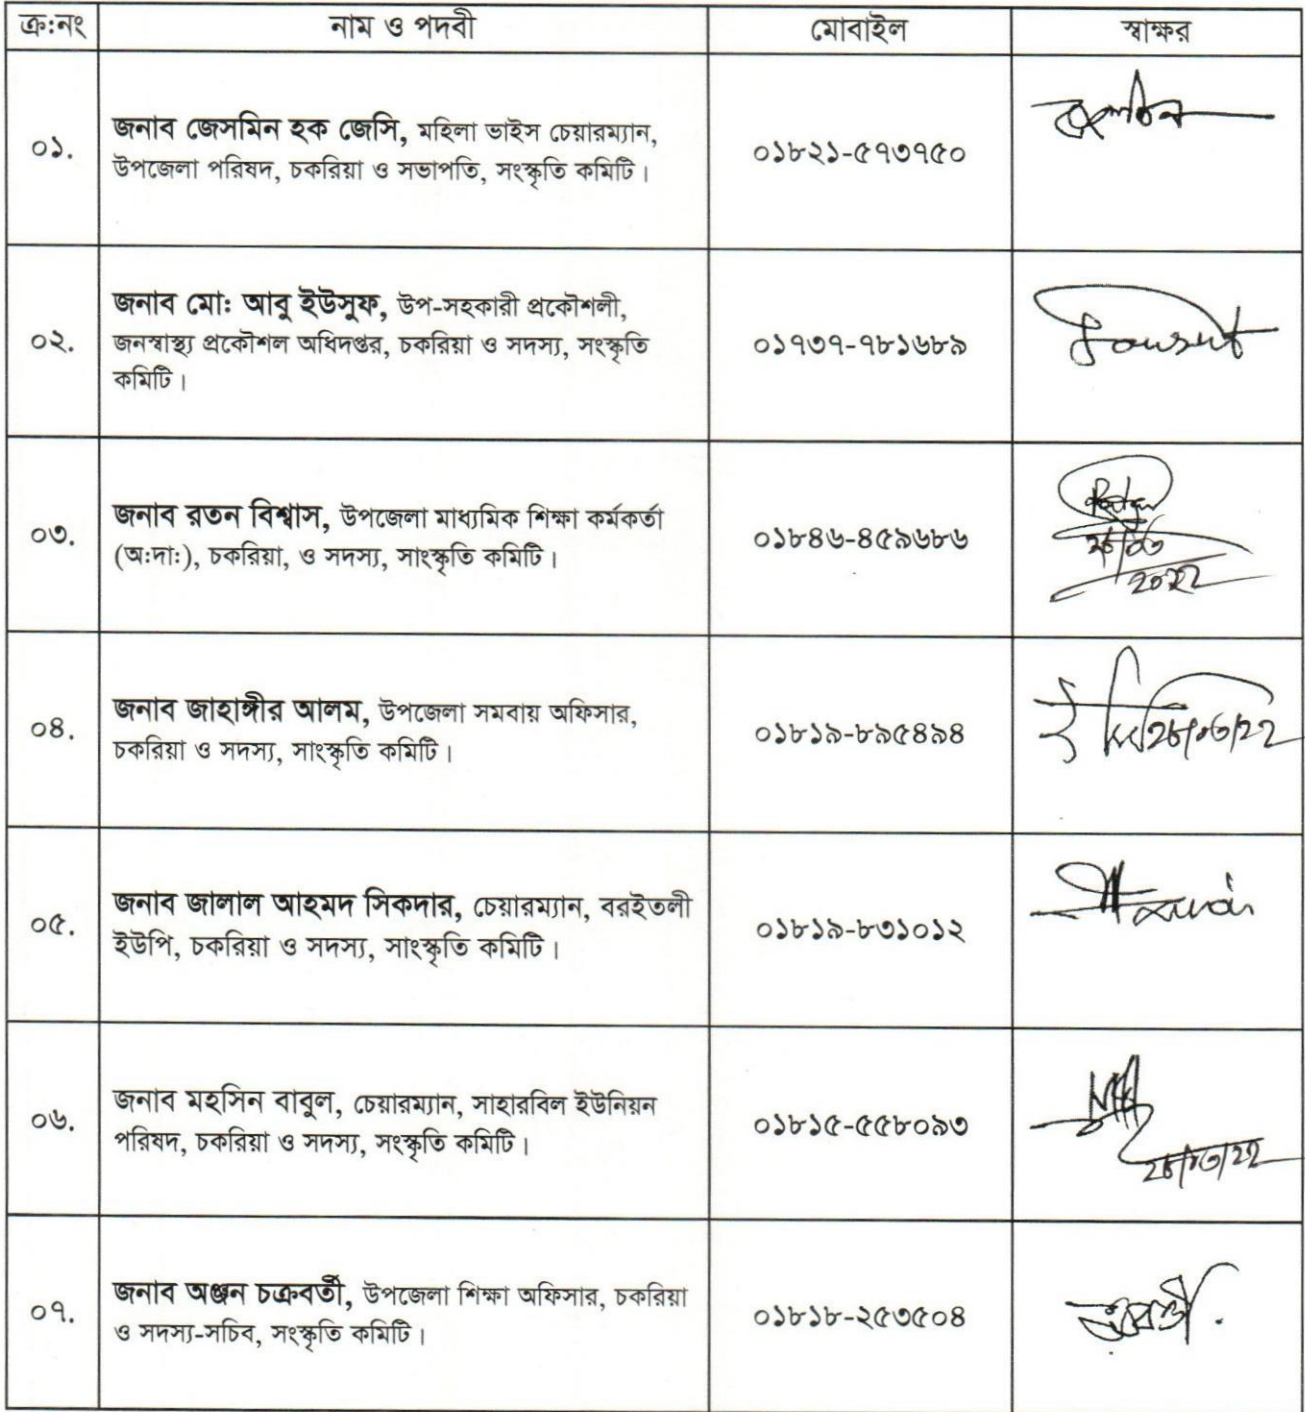 ক্র:নং নাম ও পদবী মোবাইল স্বাক্ষর
০১. জনাব জেসমিন হক জেসি, মহিলা ভাইস চেয়ারম্যান,
উপজেলা পরিষদ, চকরিয়া ও সভাপতি, সংস্কৃতি কমিটি। ০১৮২১-৫৭৩৭৫০
০২. জনাব মো: আবু ইউসুফ, উপ-সহকারী প্রকৌশলী,
জনস্বাস্থ্য প্রকৌশল অধিদপ্তর, চকরিয়া ও সদস্য, সংস্কৃতি
কমিটি। ০১৭৩৭-৭৮১৬৮৯
০৩. জনাব রতন বিশ্বাস, উপজেলা মাধ্যমিক শিক্ষা কর্মকর্তা
(অ:দা:), চকরিয়া, ও সদস্য, সাংস্কৃতি কমিটি। ০১৮৪৬-৪৫৯৬৮৬
2022
০৪. জনাব জাহাঙ্গীর আলম, উপজেলা সমবায় অফিসার,
চকরিয়া ও সদস্য, সাংস্কৃতি কমিটি। ০১৮১৯-৮৯৫৪৯৪
০৫. জনাব জালাল আহমদ সিকদার, চেয়ারম্যান, বরইতলী
ইউপি, চকরিয়া ও সদস্য, সাংস্কৃতি কমিটি। ০১৮১৯-৮৩১০১২
০৬. জনাব মহসিন বাবুল, চেয়ারম্যান, সাহারবিল ইউনিয়ন
পরিষদ, চকরিয়া ও সদস্য, সংস্কৃতি কমিটি। ০১৮১৫-৫৫৮০৯৩
০৭. জনাব অঞ্জন চক্রবর্তী, উপজেলা শিক্ষা অফিসার, চকরিয়া
ও সদস্য-সচিব, সংস্কৃতি কমিটি। ০১৮১৮-২৫৩৫০৪